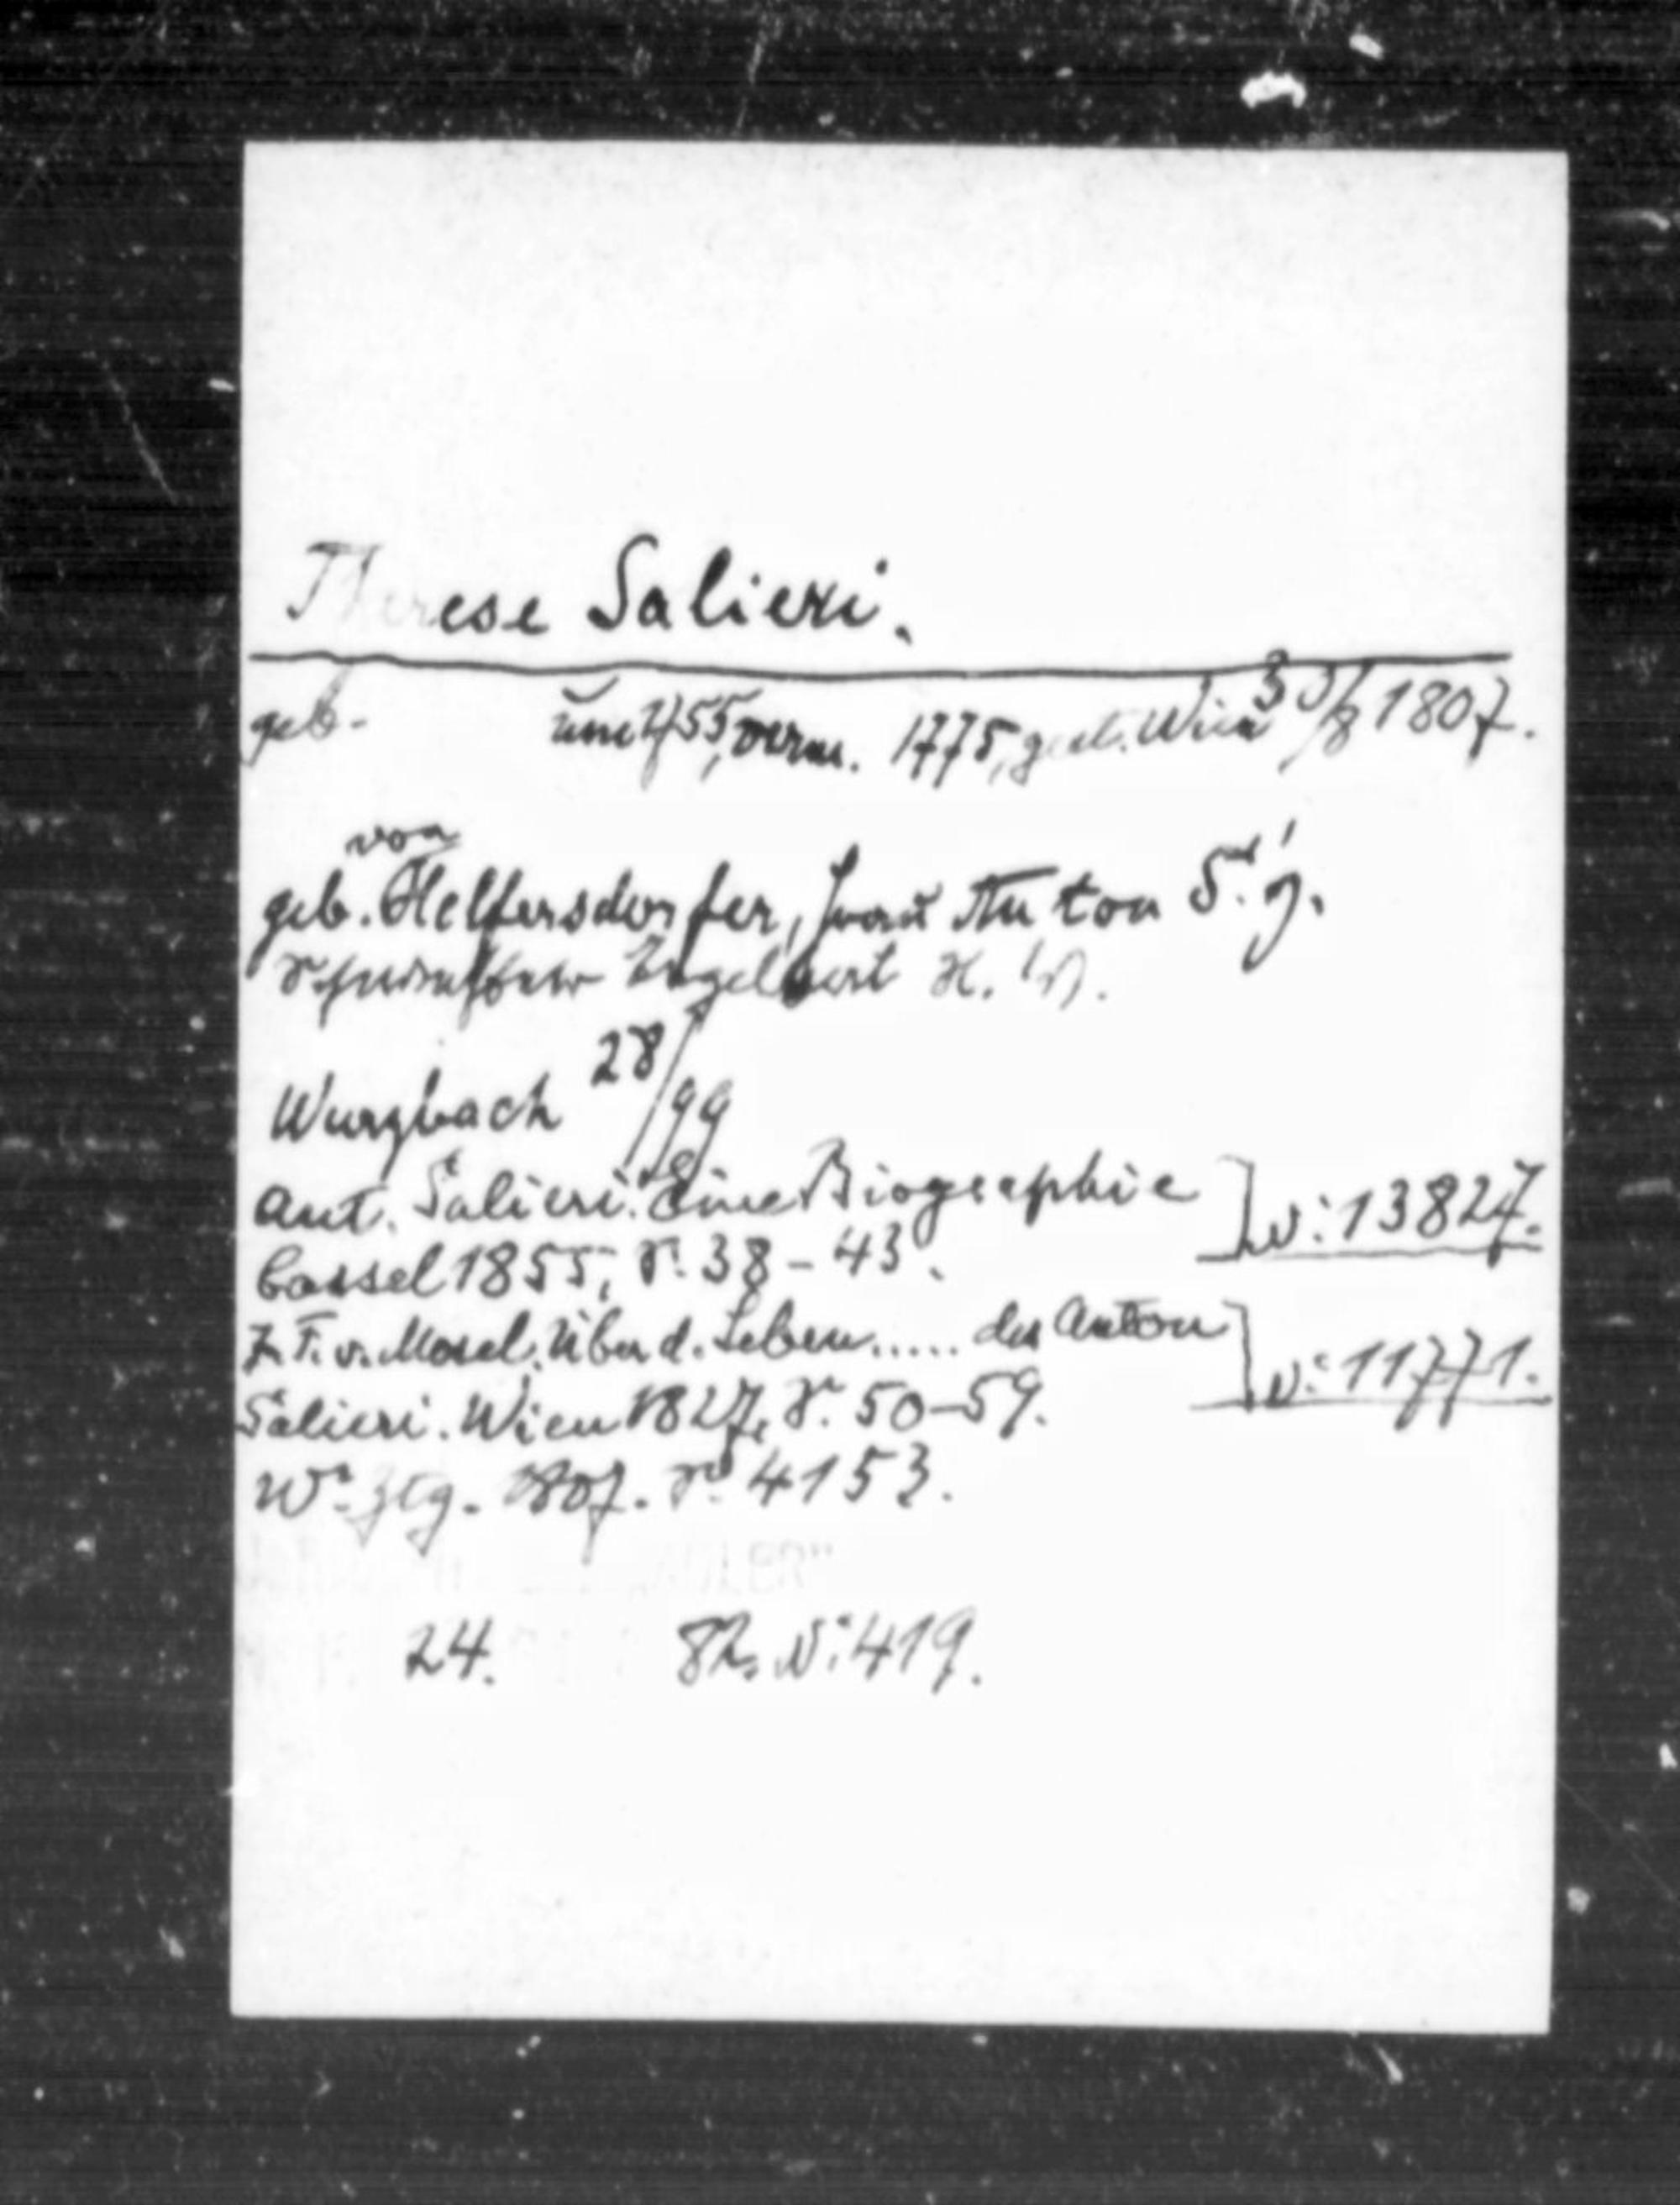 Therese Salieri.
geb. um 1755, verm. 1775, gest. Wien 30/8 1807.
von
geb. Helfersdorfer, Frau Anton S.'s.
Schwester Engelbert H.'s.
Wurzbach 28/99
Ant. Salieri. Eine Biographie
Cassel 1855, S. 38-43. N: 13827.
J. F. v. Mosel. Über d. Leben..... des Anton
Salieri. Wien 1827, S. 50-59. N: 11771.
Wr. Ztg. 1807. S. 4153.
24. 82. N: 419.